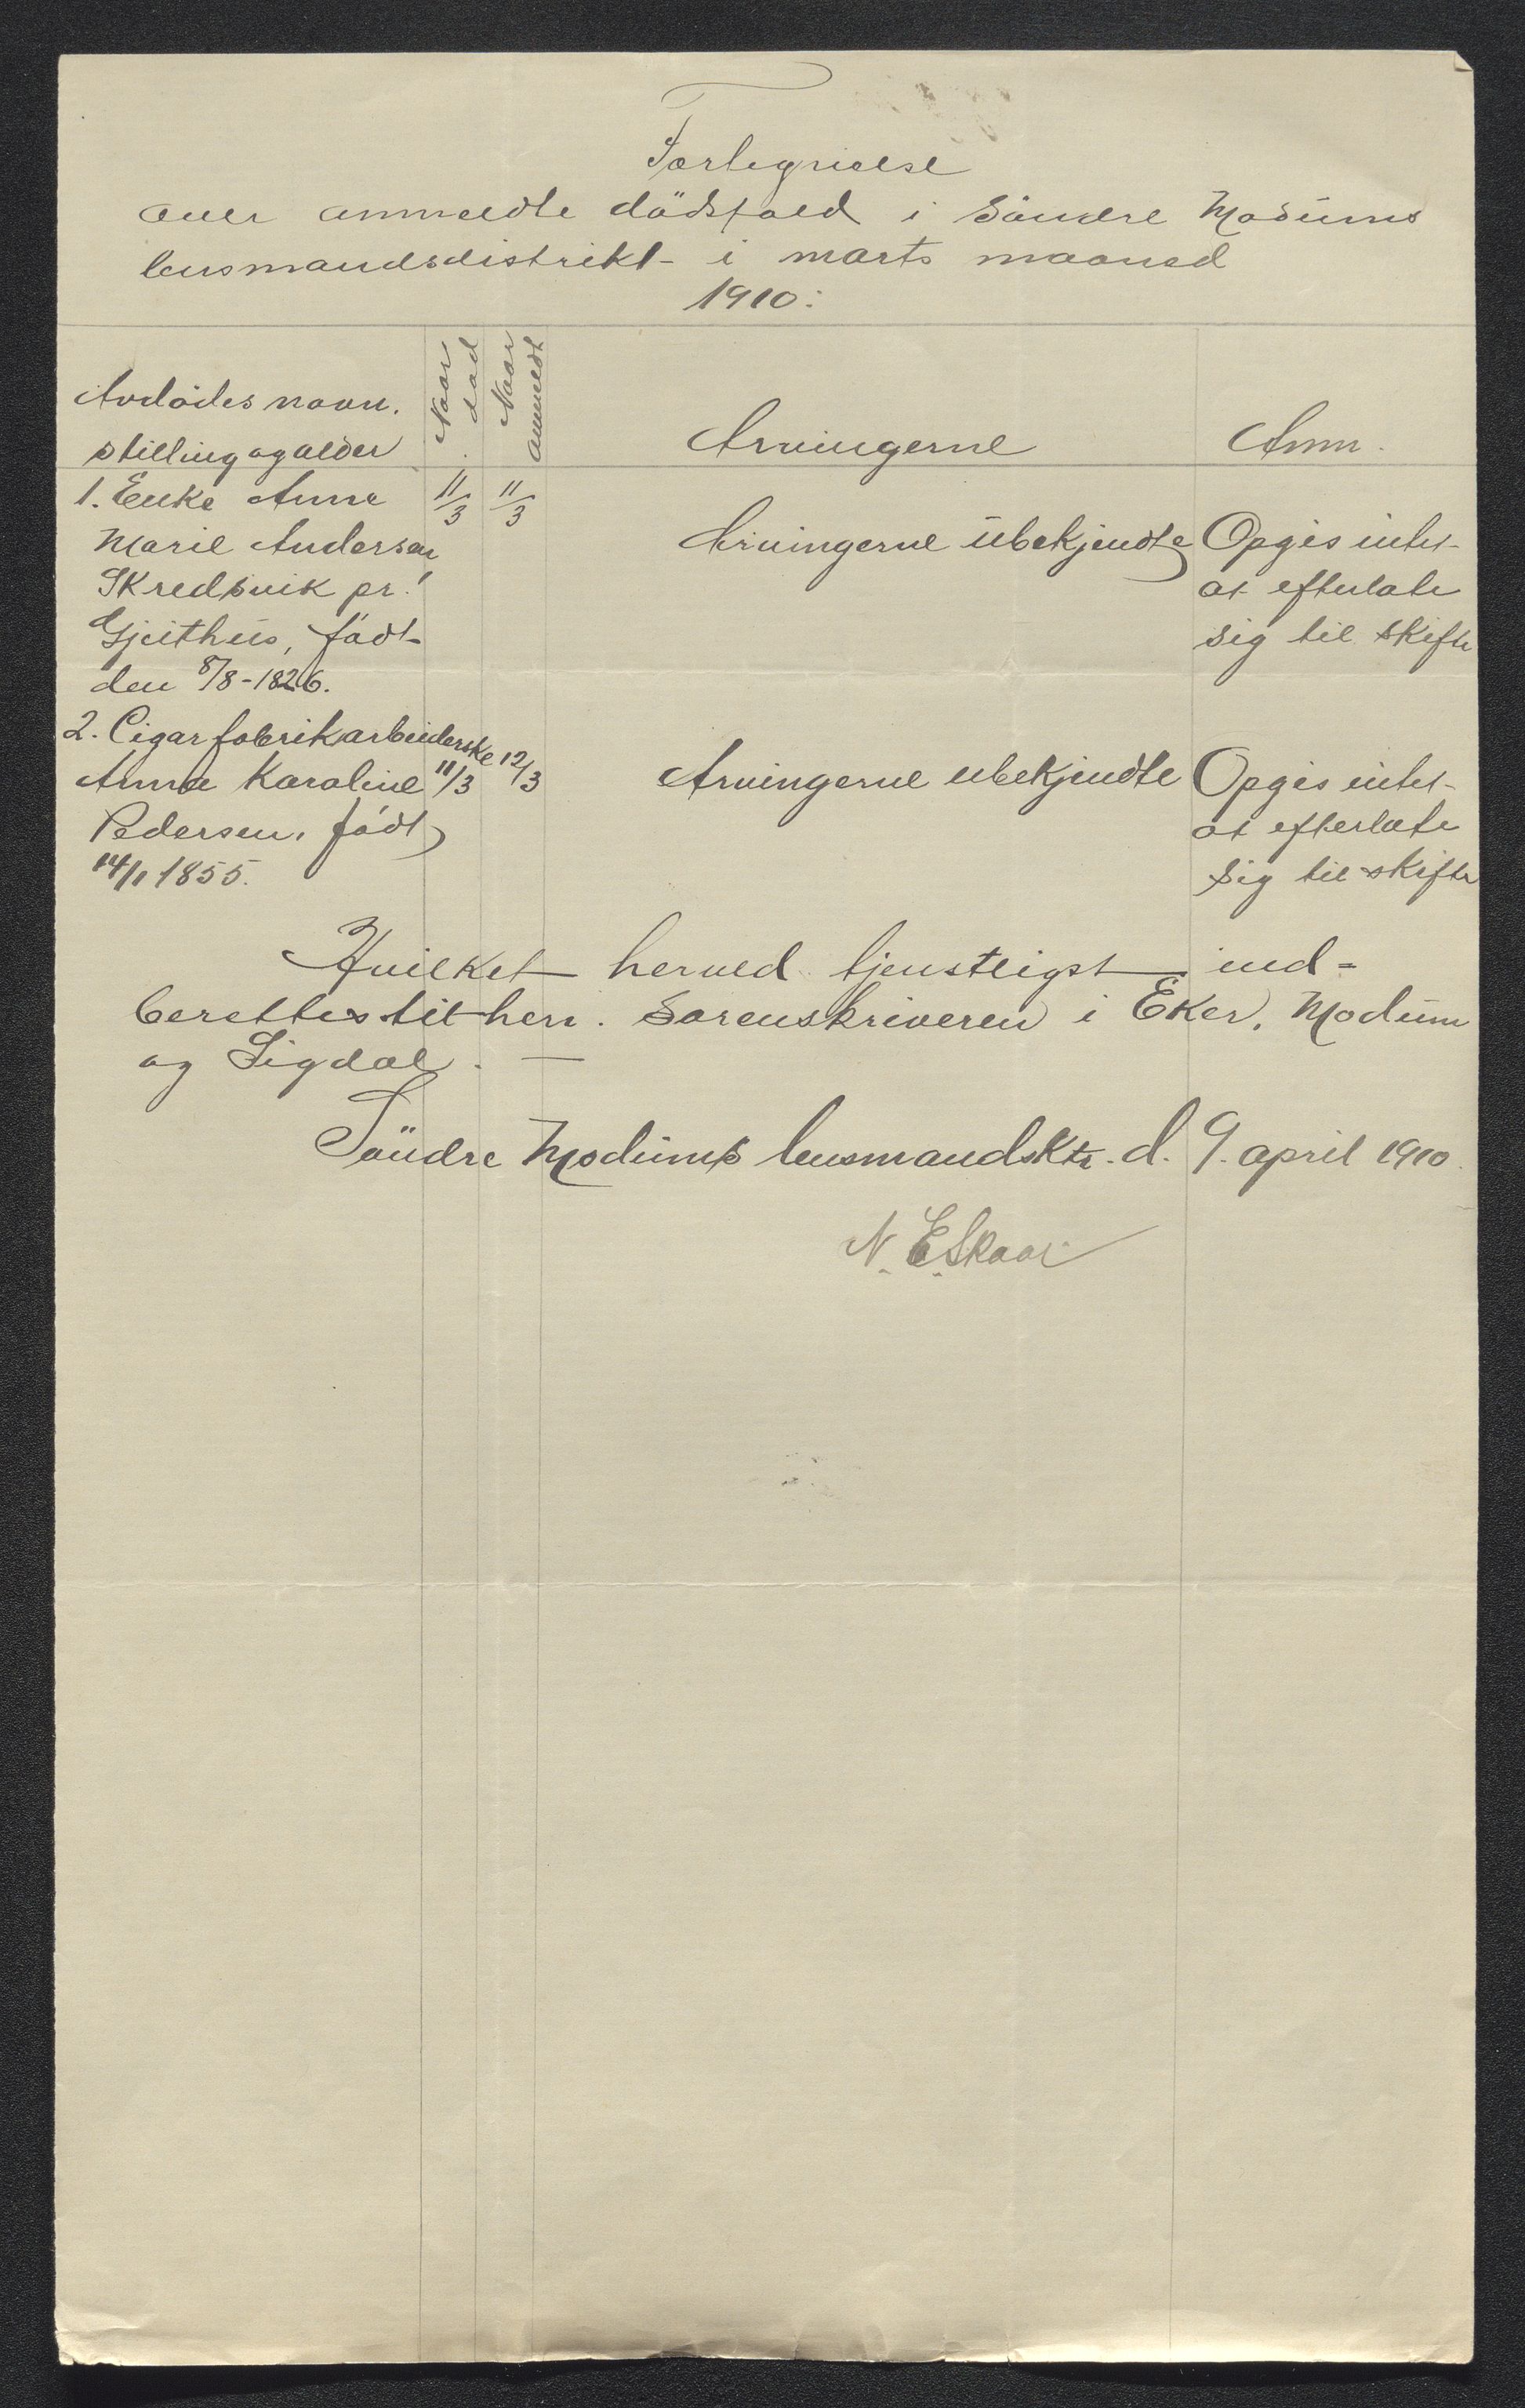 Fortegnielse
over anmeldte dödsfald i Söndre Modums
lensmandsdistrikt i marts maaned
1910:
Avdödes navn.
stilling og alder
Naar död
Naar anmeldt
Arvingerne
Anm.
1. Enke Anne 11/3 11/3
Marie Andersen Arvingerne ubekjendte Opgis intet
Skredsvik pr. at efterlate
Gjeithus, född sig til skifte
den 8/8-1826.
2. Cigarfabrikarbeiderske
Anna Karoline 11/3 12/3 Arvingerne ubekjendte Opgis intet
Pedersen, född at efterlate
14/1 1855. sig til skifte
Hvilket herved tjenstligst ind=
berettes til herr. Sorenskriveren i Eker, Modum
og Sigdal. —
Söndre Modums lensmandsktr. d. 9. april 1910.
N. E. Skaar